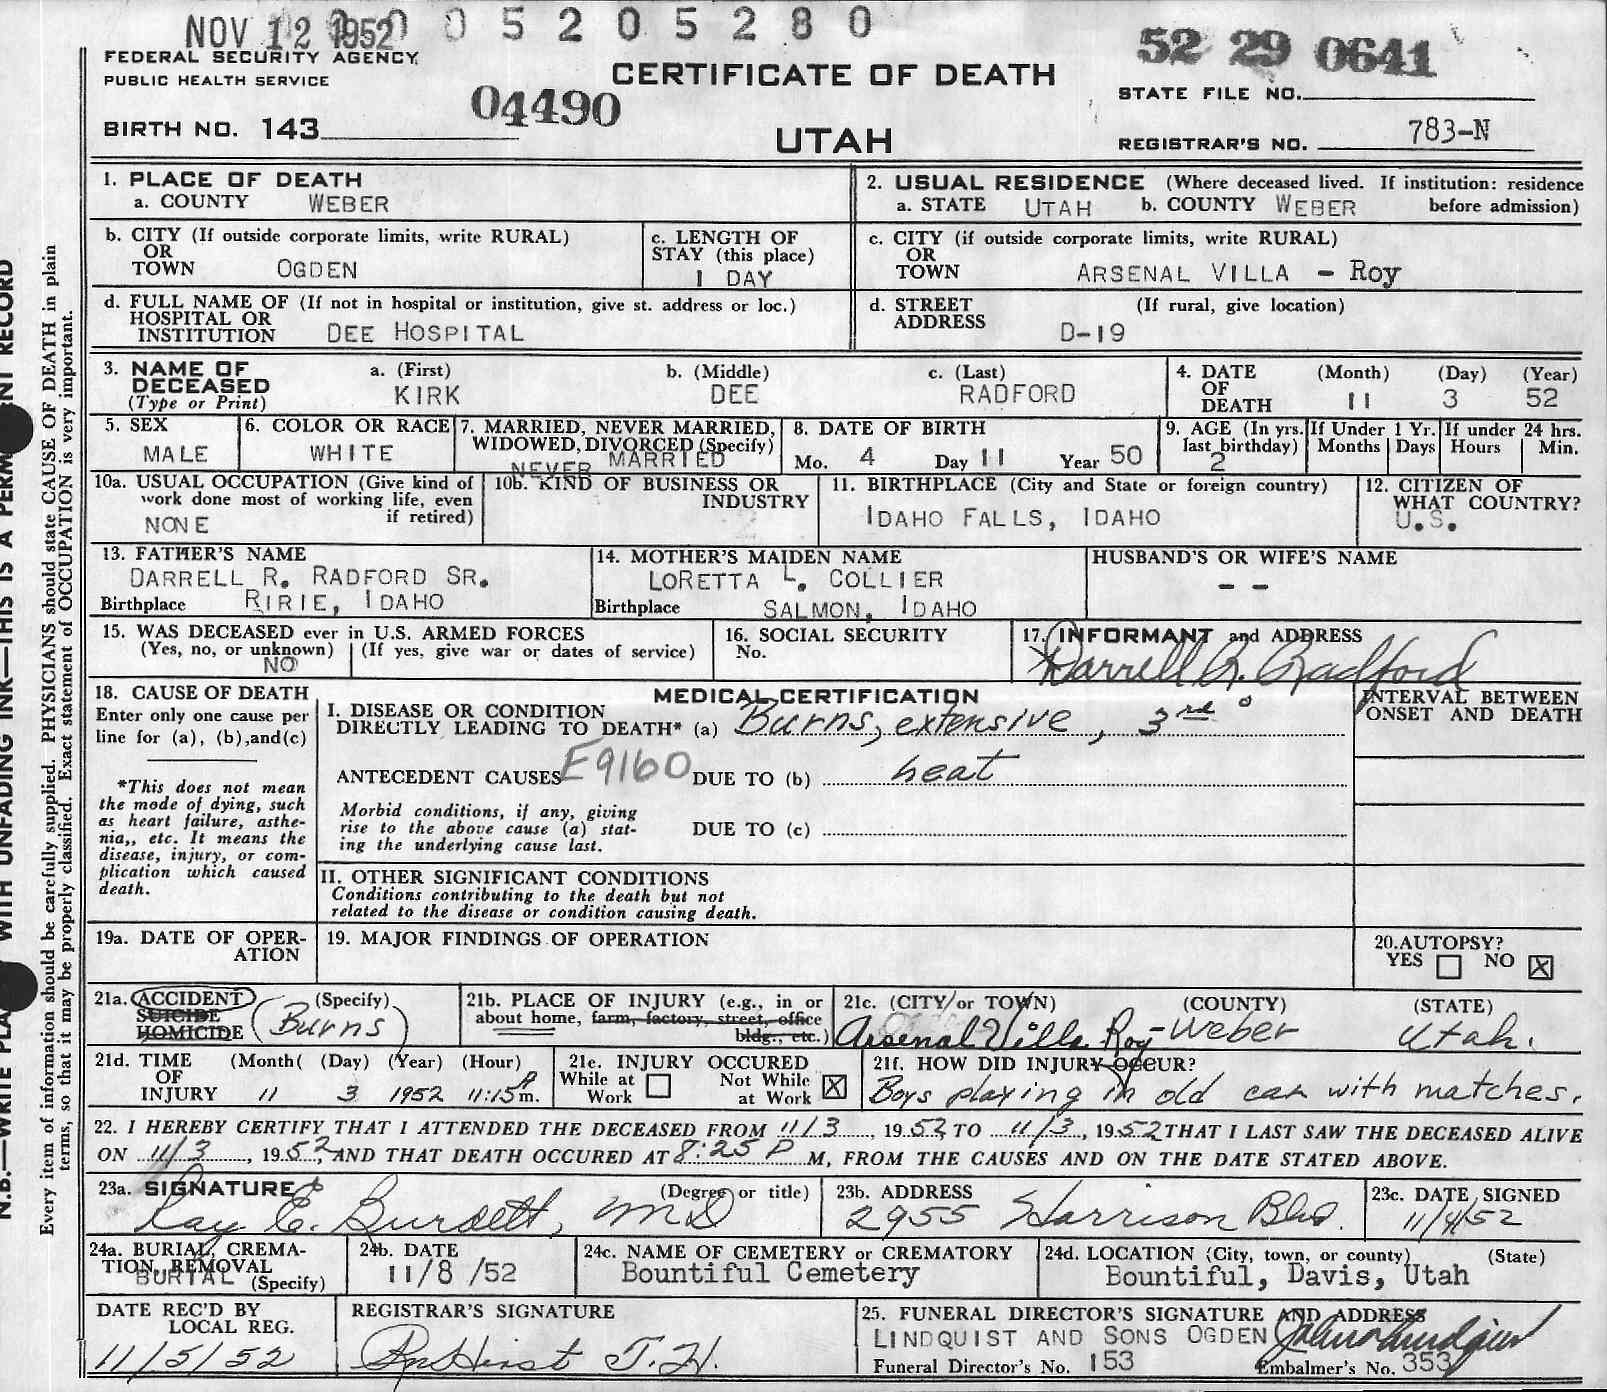 NOV 12 1952 0 0 0 5 2 0 5 2 8 0
52 29 0641
FEDERAL SECURITY AGENCY
PUBLIC HEALTH SERVICE
CERTIFICATE OF DEATH
STATE FILE NO.
BIRTH NO. 143
04490
UTAH
REGISTRAR'S NO. 783-N
1. PLACE OF DEATH
a. COUNTY WEBER
2. USUAL RESIDENCE (Where deceased lived. If institution: residence before admission)
a. STATE UTAH b. COUNTY WEBER
b. CITY (If outside corporate limits, write RURAL)
OR
TOWN OGDEN
c. LENGTH OF
STAY (this place)
1 DAY
c. CITY (if outside corporate limits, write RURAL)
OR
TOWN ARSENAL VILLA - Roy
d. FULL NAME OF (If not in hospital or institution, give st. address or loc.)
HOSPITAL OR
INSTITUTION DEE HOSPITAL
d. STREET (If rural, give location)
ADDRESS D-19
3. NAME OF
DECEASED
(Type or Print)
a. (First)
KIRK
b. (Middle)
DEE
c. (Last)
RADFORD
4. DATE
OF
DEATH
(Month) (Day) (Year)
11 3 52
5. SEX
MALE
6. COLOR OR RACE
WHITE
7. MARRIED, NEVER MARRIED,
WIDOWED, DIVORCED (Specify)
NEVER MARRIED
8. DATE OF BIRTH
Mo. 4 Day 11 Year 50
9. AGE (In yrs.
last birthday)
2
If Under 1 Yr.
Months Days
If under 24 hrs.
Hours Min.
10a. USUAL OCCUPATION (Give kind of
work done most of working life, even
if retired)
NONE
10b. KIND OF BUSINESS OR
INDUSTRY
11. BIRTHPLACE (City and State or foreign country)
IDAHO FALLS, IDAHO
12. CITIZEN OF
WHAT COUNTRY?
U.S.
13. FATHER'S NAME
DARRELL R. RADFORD SR.
Birthplace RIRIE, IDAHO
14. MOTHER'S MAIDEN NAME
LORETTA L. COLLIER
Birthplace SALMON, IDAHO
HUSBAND'S OR WIFE'S NAME
- -
15. WAS DECEASED ever in U.S. ARMED FORCES
(Yes, no, or unknown) (If yes, give war or dates of service)
NO
16. SOCIAL SECURITY
No.
17. INFORMANT and ADDRESS
Darrell R. Radford
18. CAUSE OF DEATH
Enter only one cause per
line for (a), (b), and (c)
*This does not mean
the mode of dying, such
as heart failure, asthe-
nia,, etc. It means the
disease, injury, or com-
plication which caused
death.
MEDICAL CERTIFICATION
I. DISEASE OR CONDITION
DIRECTLY LEADING TO DEATH* (a) Burns, extensive, 3rd °
ANTECEDENT CAUSES E9160 DUE TO (b) heat
Morbid conditions, if any, giving
rise to the above cause (a) stat-
ing the underlying cause last.
DUE TO (c)
INTERVAL BETWEEN
ONSET AND DEATH
II. OTHER SIGNIFICANT CONDITIONS
Conditions contributing to the death but not
related to the disease or condition causing death.
19a. DATE OF OPER-
ATION
19. MAJOR FINDINGS OF OPERATION
20. AUTOPSY?
YES NO X
21a. ACCIDENT (Specify)
SUICIDE
HOMICIDE (Burns)
21b. PLACE OF INJURY (e.g., in or
about home, farm, factory, street, office
bldg., etc.)
21c. (CITY or TOWN) (COUNTY) (STATE)
Arsenal Villa Roy - Weber Utah.
21d. TIME (Month) (Day) (Year) (Hour)
OF
INJURY 11 3 1952 11:15 A m.
21e. INJURY OCCURED
While at Work Not While at Work X
21f. HOW DID INJURY OCCUR?
Boys playing in old car with matches.
22. I HEREBY CERTIFY THAT I ATTENDED THE DECEASED FROM 11/3, 1952 TO 11/3, 1952 THAT I LAST SAW THE DECEASED ALIVE
ON 11/3, 1952, AND THAT DEATH OCCURED AT 8:25 P M, FROM THE CAUSES AND ON THE DATE STATED ABOVE.
23a. SIGNATURE (Degree or title)
Ray E. Burdett, MD
23b. ADDRESS
2955 Harrison Blvd.
23c. DATE SIGNED
11/4/52
24a. BURIAL, CREMA-
TION, REMOVAL
BURIAL (Specify)
24b. DATE
11/8/52
24c. NAME OF CEMETERY or CREMATORY
Bountiful Cemetery
24d. LOCATION (City, town, or county) (State)
Bountiful, Davis, Utah
DATE REC'D BY
LOCAL REG.
11/5/52
REGISTRAR'S SIGNATURE
25. FUNERAL DIRECTOR'S SIGNATURE AND ADDRESS
LINDQUIST AND SONS OGDEN
Funeral Director's No. 153 Embalmer's No. 353
Every item of information should be carefully supplied. PHYSICIANS should state CAUSE OF DEATH in plain
terms, so that it may be properly classified. Exact statement of OCCUPATION is very important.
WITH UNFADING INK—THIS IS A